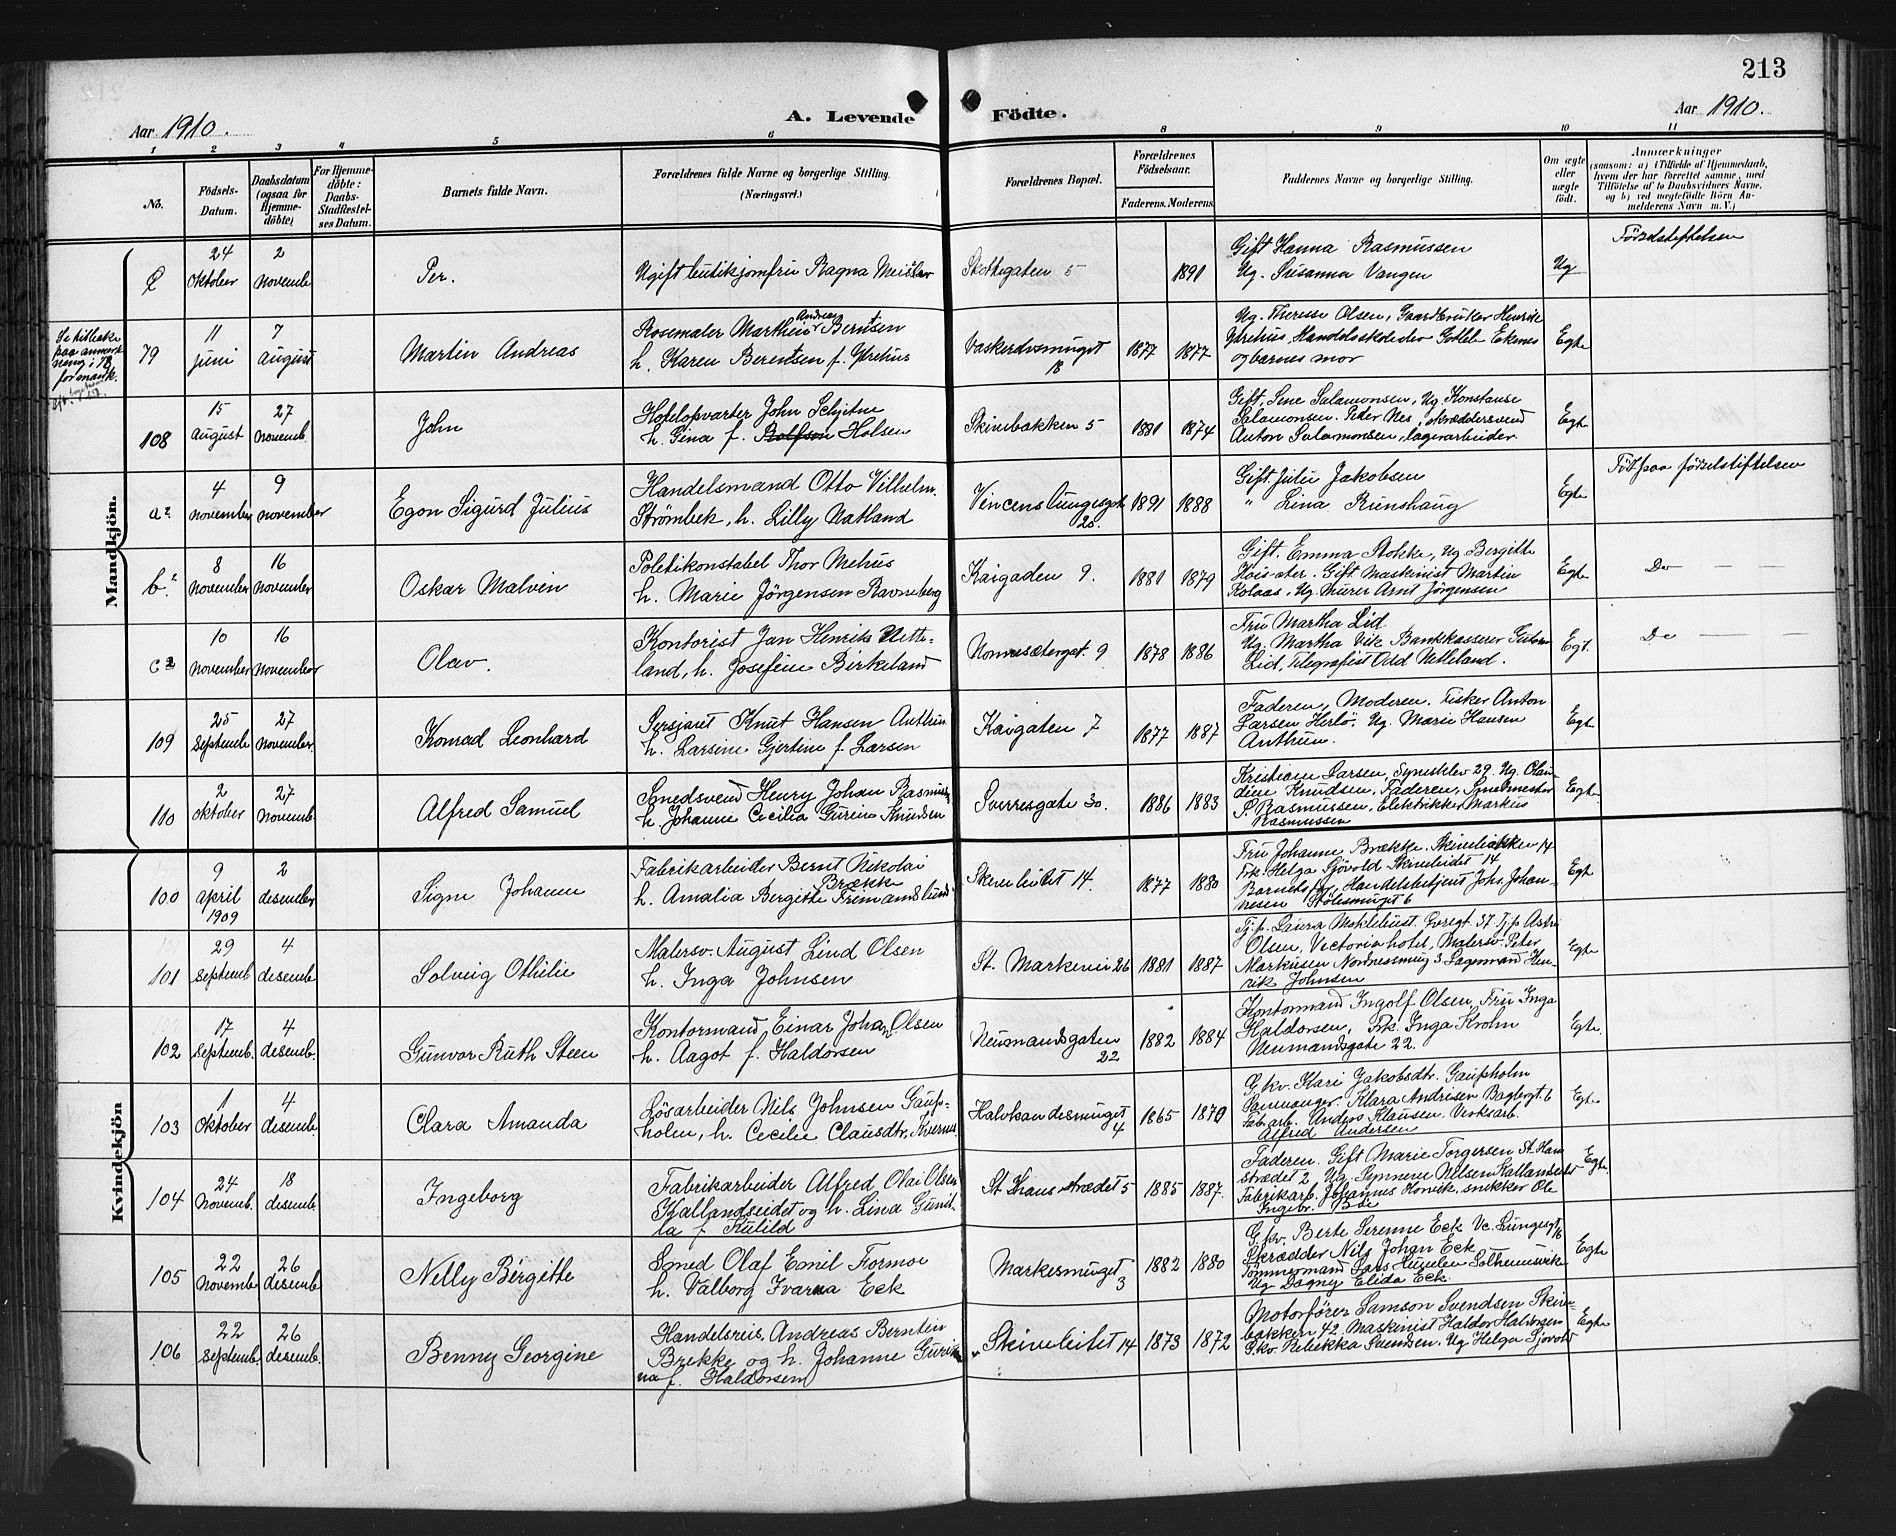 213
Aar 1910.
A. Levende Födte.
Aar 1910.
1 2 3 4 5 6 8 9 10 11
No.
Födsels-Datum.
Daabsdatum (ogsaa for Hjemme-döbte)
For Hjemme-döbte: Daabs-Stadfæstel-ses Datum.
Barnets fulde Navn.
Forældrenes fulde Navne og borgerlige Stilling.
(Næringsvei.)
Forældrenes Bopæl.
Forældrenes Födselsaar.
Faderens. Moderens.
Faddernes Navne og borgerlige Stilling.
Om ægte eller uægte födt.
Anmærkninger
(saasom: a) i Tilfælde af Hjemmedaab,
hvem der har forrettet samme, med
Tilföielse af to Daabsvidners Navne,
og b) ved uægtefödte Börn An-
melderens Navn m. V.)
Mandkjön.
24 Oktober 2 Novemb Per. Ugift butikjomfru Ragna Meisler Skottegaten 5 1891 Gift Hanna Rasmussen
Ug. Susanna Vangen Ug Förselstiftelsen
Se tilbake paa anmerk ning i 78 for mandk.
79 11 juni 7 august Martin Andreas Rosemaler Marthein Andreas Berntsen
h. Karen Berentsen f. Ytrehus Vaskerelvsmuget 18 1877 1877 Ug. Therese Olsen, Gaardbruker Henrik
Ytrehus Handelsskoleelev Gotleb Ekenes
og barnes mor Egte
108 15 August 27 Novemb. John Hotelopvarter John Schjetne
h. Gina f. Rolfson Holsen Skinebakken 5 1881 1874 Gift, Sene Salamonsen, Ug Konstanse
Salamonsen. Peter Nes, skræddersvend
Anton Salamonsen, lagerarbeider. Egte
a² 4 November 9 november Egon Sigurd Julius Handelsmand Otto Vilhelm
Strömbek, h. Lilly Natland Vincens Lungesgate 25. 1891 1888 Gift. Juli Jakobsen
" Lina Runshaug Egte Föt paa förselstiftelsen
b² 8 November 16 November Oskar Malvin Politikonstabel Thor Mehus
h. Marie Jörgensen Ravneberg Kaigaden 9. 1881 1879 Gift. Emma Stokke, Ug Bergitte
Gift Maskinist Martin
Kolaas, Ug Murer Arnt Jörgensen Egte Do — —
c² 10 November 16 November Olav. Kontorist Jan Henrik Nette-
land, h. Josefine Birkeland Nonnesæterget. 9 1878 1886 Fru Martha Lid
Ug. Martha Vik Bankkasserer
Lid, Telegrafist Odd Netteland. Egt. Do — —
109 25 Septembe 27 November. Konrad Leonhard Sersjant Knut Hansen Anthun
h. Larsine Gjertine f. Larsen Kaigaten 7 1877 1887 Faderen, Moderen. Fisker Anton
Larsen Herlö. Ug. Marie Hansen
Anthun. Egte
110 2 Oktober 27 Novemb. Alfred Samuel Smedsvend Henry Johan Rasmussen
h. Johanne Cecilia Gurine Knudsen Sverresgate 30. 1886 1883 Kristiane Larsen, 29. Ug. Clau-
dine Knudsen, Faderen, Smedmester
S. Rasmussen, Elektrikker Markus
Rasmussen Egte
Kvindekjön
100 9 April 1909 2 desember Signe Johanne Fabrikarbeider Bernt Nikolai Brække
h. Amalia Bergitte Fremanslund Skivebakken 14. 1877 1880 Fru Johanne Brække. Skinebakken 14
Frk. Helga Sjövold Skineleidet 14
Barnets far, Handelsbetjent Johs. Johan-
nesen Stölesmuget 6 Egt
101 29 Septemb 4 desembe Solveig Othilie Malersv. August Lind Olsen
h. Inga Johnsen St. Markevei 26 1881 1887 Tj.p. Laura Tj.p Astri
Olsen, Victoria hotel, Malersv. Peter
Markusen Nordnesmug 3 Lagermand Hen-
rik Johnsen Egte
102 17 Septemb. 4 desemb. Gunvor Ruth Steen Kontormand Einar Johan Olsen
h. Aagot f. Haldorsen Neumandsgaten 22 1882 1884 Kontormand Ingolf Olsen, Fru Inga
Haldorsen, Frk. Inga Krohn
Neumandsgate 22. Egte.
103 1 Oktober 4 desemb. Clara Amanda Lösarbeider Nils Johnsen Gaup-
holm, h. Cecilie Clausdtr. Halvkandesmuget 4 1865 1870 G. kv. Kari Jakobsdtr. Gaupholm
Klara Andrisen 6
Fab. arb. Anders Klausen, Verksarb.
Alfred Andersen Egte
104 24 Novemb. 18 desemb. Ingeborg Fabrikarbeider Alfred Olai Olsen
Kallandseidet og h. Lina Gunil-
la f. Kulild St Hans strædet 5 1885 1887. Faderen. Gift Marie Torgersen St. Hans
strædet 2 Ug. Synneve Nilsen Kallandseidet
Fabrikarb. Johannes snikker Ole
Ingebr. Böe Egte.
105 22 Novembe 26 desemb. Nelly Bergitte Smed Olaf Emil Formoe
h. Valborg Ivarna Eck Markesmuget 3 1882 1880 G. kv. Berte Serenne Eck Vc. Lungesgt 16
Skrædder Nils Johan Eck
Tömmermand Lars Solheimsvik
Ug Dagny Elida Eck. Egte
106 22 Septemb. 26 desemb. Benny Georgine Handelsreis. Andreas Berntin
Brekke og h. Johanne Guri-
na f. Haldorsen Skineleitet 14 1873 1872 Motorförer Samson Svendsen Skine-
bakken 42 Maskinist Haldor Halvorsen
G.kv. Rebekka Svendsen. Ug Helga Sjövold Egte